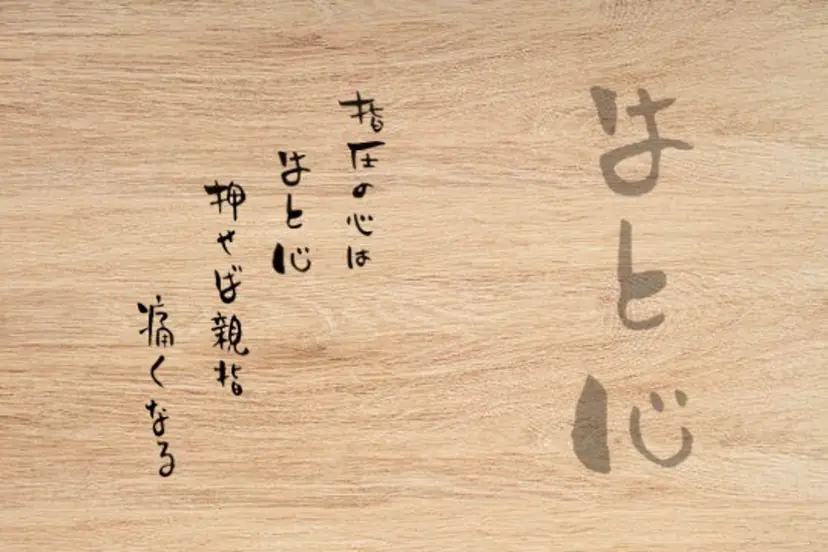 はと心
指圧の心は
はと心
押せば親指
痛くなる